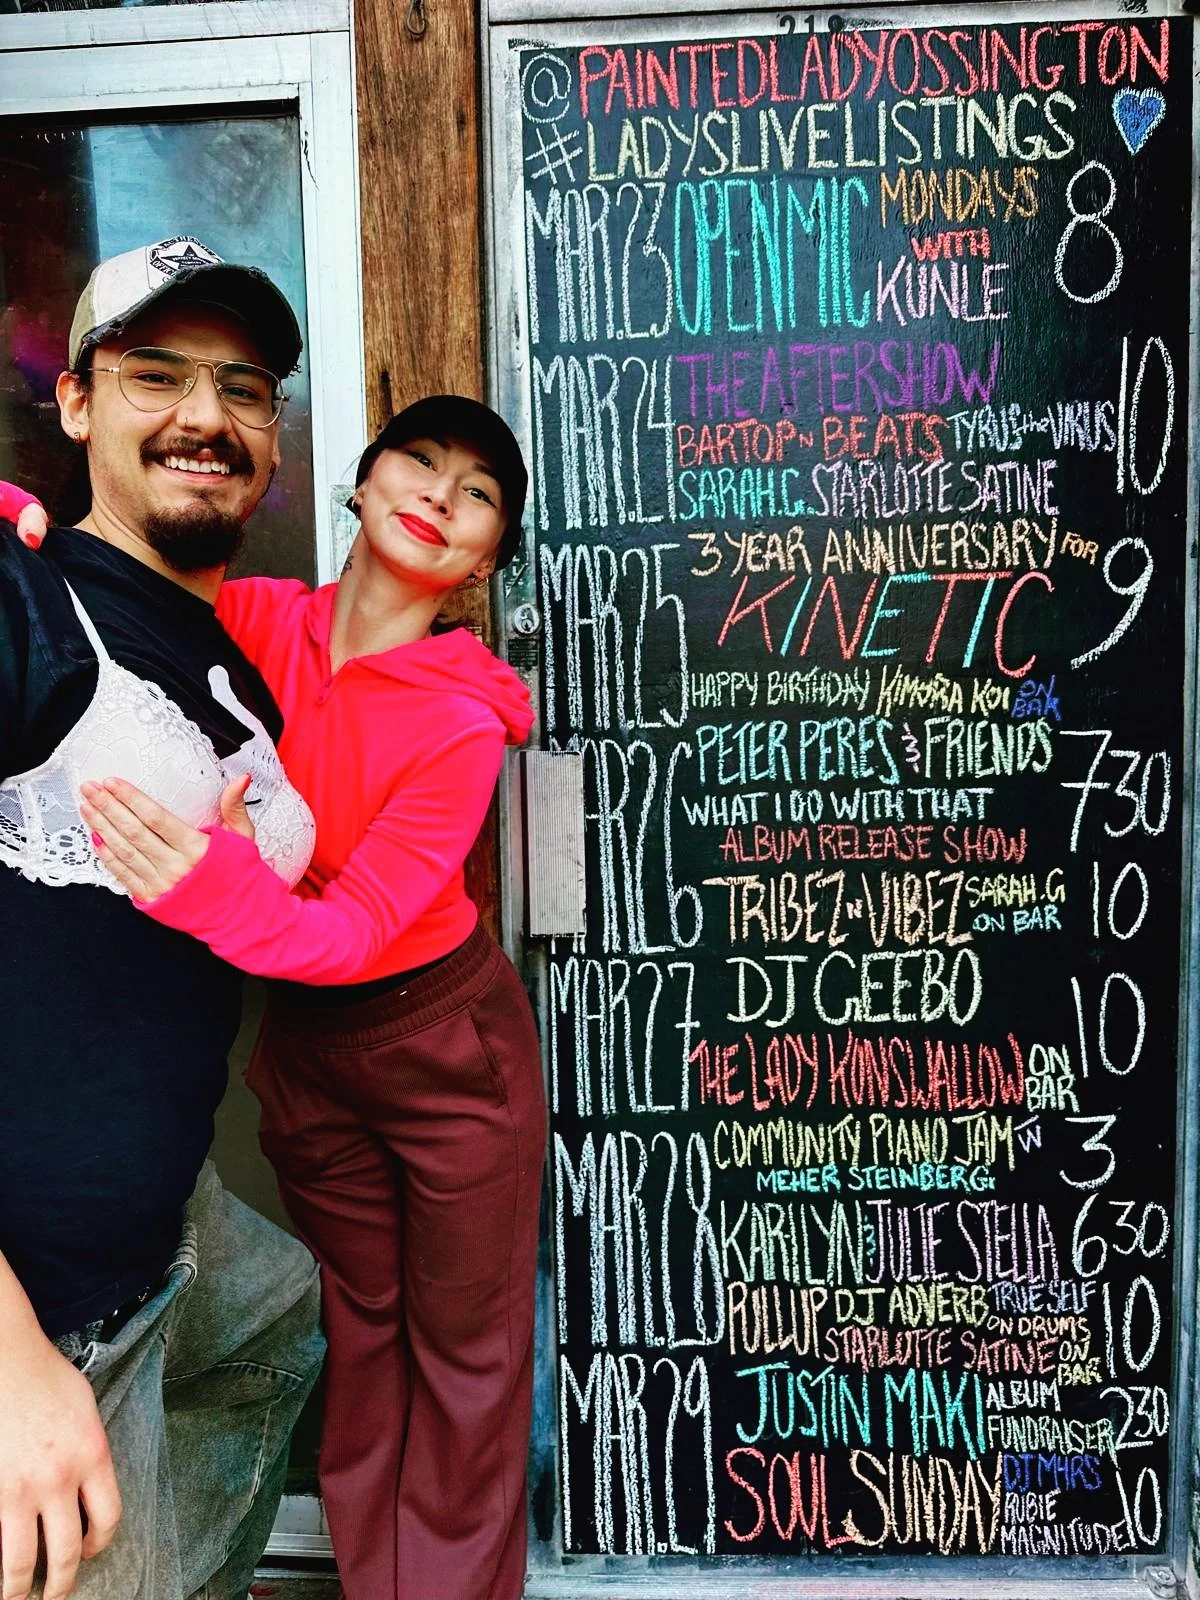 218
@PAINTEDLADYOSSINGTON
#LADYSLIVELISTINGS
MAR.23 OPEN MIC MONDAYS WITH KUNLE 8
MAR.24 THE AFTERSHOW 10
BARTOP N BEATS TYRUS the VIRUS
SARAH.G. STARLOTTE SATINE
MAR.25 3 YEAR ANNIVERSARY FOR 9
KINETIC
HAPPY BIRTHDAY KIMORA KOI ON BAR
MAR 26 PETER PERES & FRIENDS 730
WHAT I DO WITH THAT
ALBUM RELEASE SHOW
TRIBEZ N VIBEZ SARAH.G ON BAR 10
MAR.27 DJ GEEBO 10
THE LADY KONSWALLOW ON BAR
MAR.28 COMMUNITY PIANO JAM W 3
MEHER STEINBERG
KARILYN & JULIE STELLA 630
PULLUP DJ ADVERB TRUE SELF ON DRUMS 10
STARLOTTE SATINE ON BAR
MAR.29 JUSTIN MAKI ALBUM FUNDRAISER 230
SOUL SUNDAY DJ M4RS RUBIE MAGNITUDE 10